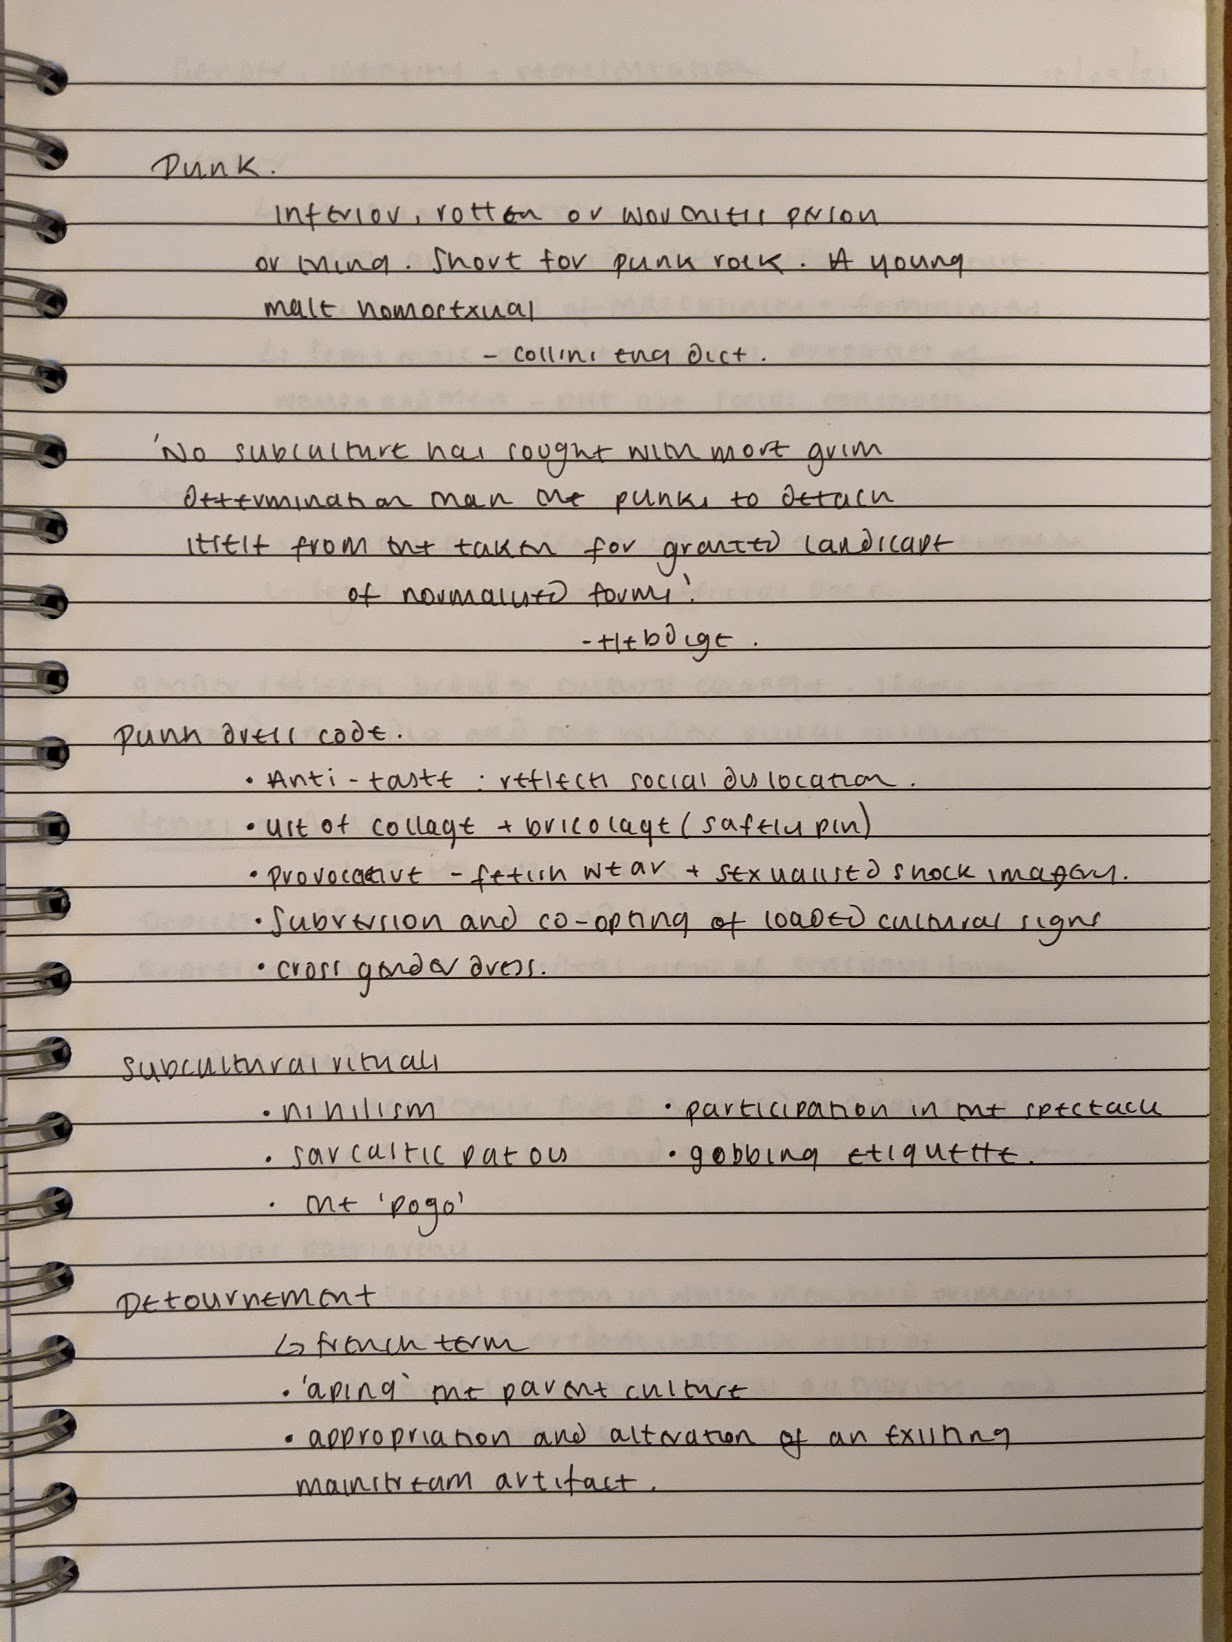 Punk.
inferior, rotten or worthless person
or thing. Short for punk rock. A young
male homosexual
- Collins eng dict.
'No subculture has sought with more grim
determination than the punks to detach
itself from the taken for granted landscape
of normalised forms'.
- Hebdige.
Punk dress code.
• Anti-taste : reflects social dislocation.
• use of collage + bricolage (saftey pin)
• provocative - fetish wear + sexualised shock imagery.
• Subversion and co-opting of loaded cultural signs
• cross gender dress.
Subcultural rituals
• nihilism
• participation in the spectacle
• sarcastic patois
• gobbing etiquette.
• the 'pogo'
Detournement
↳ french term
• 'aping' the parent culture
• appropriation and alteration of an existing
mainstream artifact.